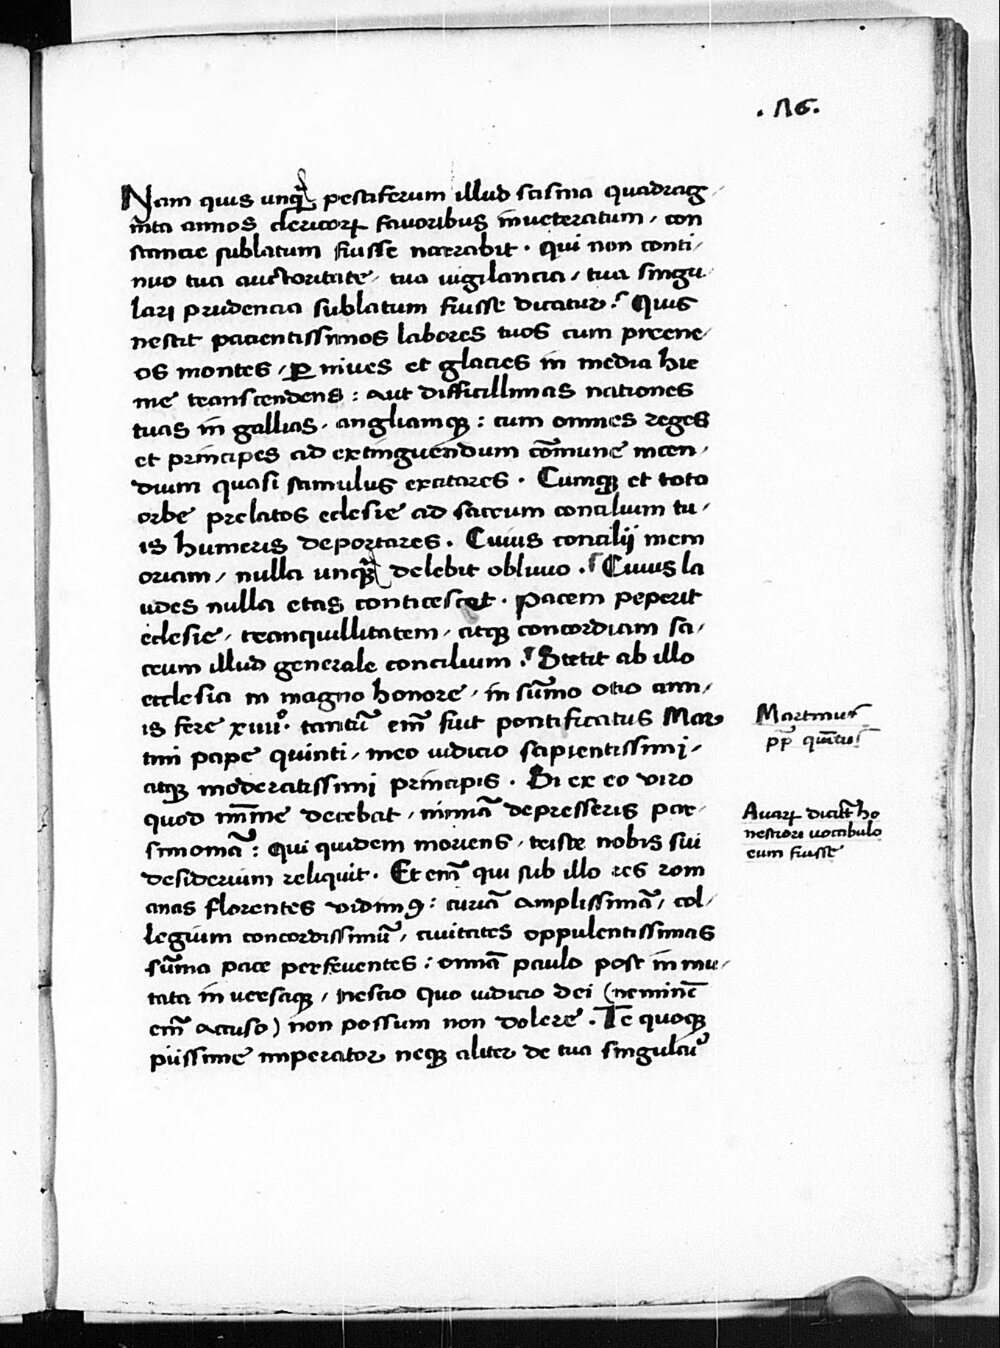 .116.
Nam quis unq̃ pestiferum illud scisma quadrag
inta annos clericoꝝ favoribus inveteratum, con
stancie sublatum fuisse narrabit. qui non conti,
nuo tua auctoritate, tua vigilancia, tua singu
lari prudencia sublatum fuisse dicatur? Quis
nescit pacientissimos labores tuos cum preene
os montes, ꝑ nives et glacies in media hie
me transcendens: aut difficillimas nationes
tuas in gallias, angliamqꝫ: cum omnes reges
et principes ad extinguendum cõmune incen,
dium quasi stamulus excitares. Cumqꝫ et toto
orbe prelatos eclesie ad sacrum concilium tu,
is humeris deportares. Cuius concilij mem
oriam, nulla unqꝫ̃ delebit oblivio. Cuius la
udes nulla etas conticescet. pacem peperit
eclesie, tranquillitatem, atqꝫ concordiam sa,
crum illud generale concilium. Stetit ab illo
ecclesia in magno honore, in sũmo otio ann,
is fere xiiii°. tantũ em̃ fuit pontificatus Mar
tini pape quinti, meo iudicio sapientissimi,
atqꝫ moderatissimi principis. Si ex eo viro
quod mĩme decebat, nimiã depresseris par,
simoniã: Qui quidem moriens, triste nobis sui
desiderium reliquit. Et em̃ qui sub illo res rom
anas florentes vidimꝯ: curiã amplissimã, col,
legium concordissimũ, civitates oppulentissimas
sũma pace perfruentes: omnia paulo post inmu,
tata in versaqꝫ, nescio quo iudicio dei (neminẽ
em̃ accuso) non possum non dolere. Te quoqꝫ
piissime imperator neqꝫ aliter de tua singulari
Martinus
pp̃ quintus
Avaꝝ dicit ho
nestiori vocabulo
eum fuisse